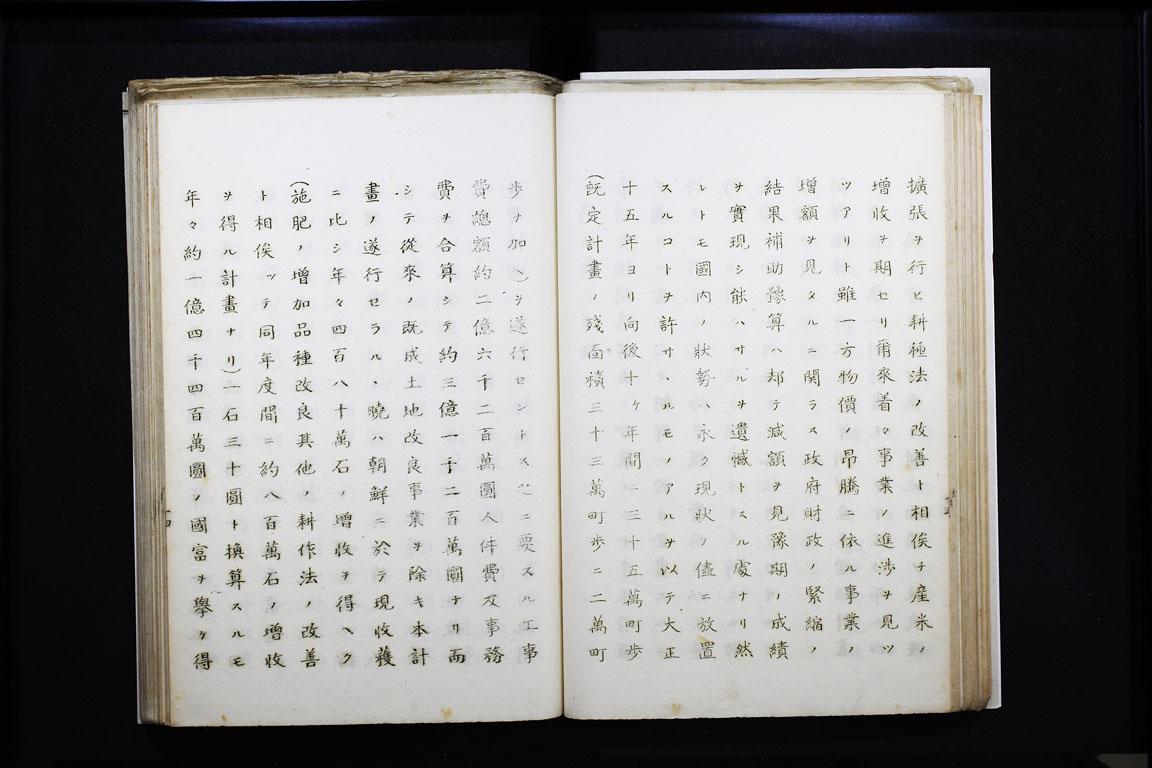 擴張ヲ行ヒ耕種法ノ改善ト相俟チ産米ノ
増收ヲ期セリ爾來着々事業ノ進渉ヲ見ツ
ツアリト雖一方物價ノ昂騰ニ依ル事業ノ
増額ヲ見タルニ関ラス政府財政ノ緊縮ノ
結果補助豫算ハ却テ減額ヲ見豫期ノ成績
ヲ實現シ能ハサルヲ遺憾トスル處ナリ然
レトモ國内ノ狀勢ハ永ク現狀ノ儘ニ放置
スルコトヲ許サヽルモノアルヲ以テ大正
十五年ヨリ向後十ケ年間ニ三十五萬町歩
(既定計畫ノ残面積三十三萬町歩ニ二萬町
歩ヲ加ノ)ヲ遂行セントス之ニ要スル工事
費總額約二億六千二百萬圓人件費及事務
費ヲ合算シテ約三億一千二百萬圓ナリ而
シテ從來ノ既成土地改良事業ヲ除キ本計
畫ノ遂行セラルヽ曉ハ朝鮮ニ於テ現收穫
ニ比シ年々四百八十萬石ノ增收ヲ得ヘク
(施肥ノ增加品種改良其他ノ耕作法ノ改善
ト相俟ツテ同年度間ニ約八百萬石ノ增收
ヲ得ル計畫ナリ)一石三十圓ト換算スルモ
年々約一億四千四百萬圓ノ國富ヲ擧ケ得